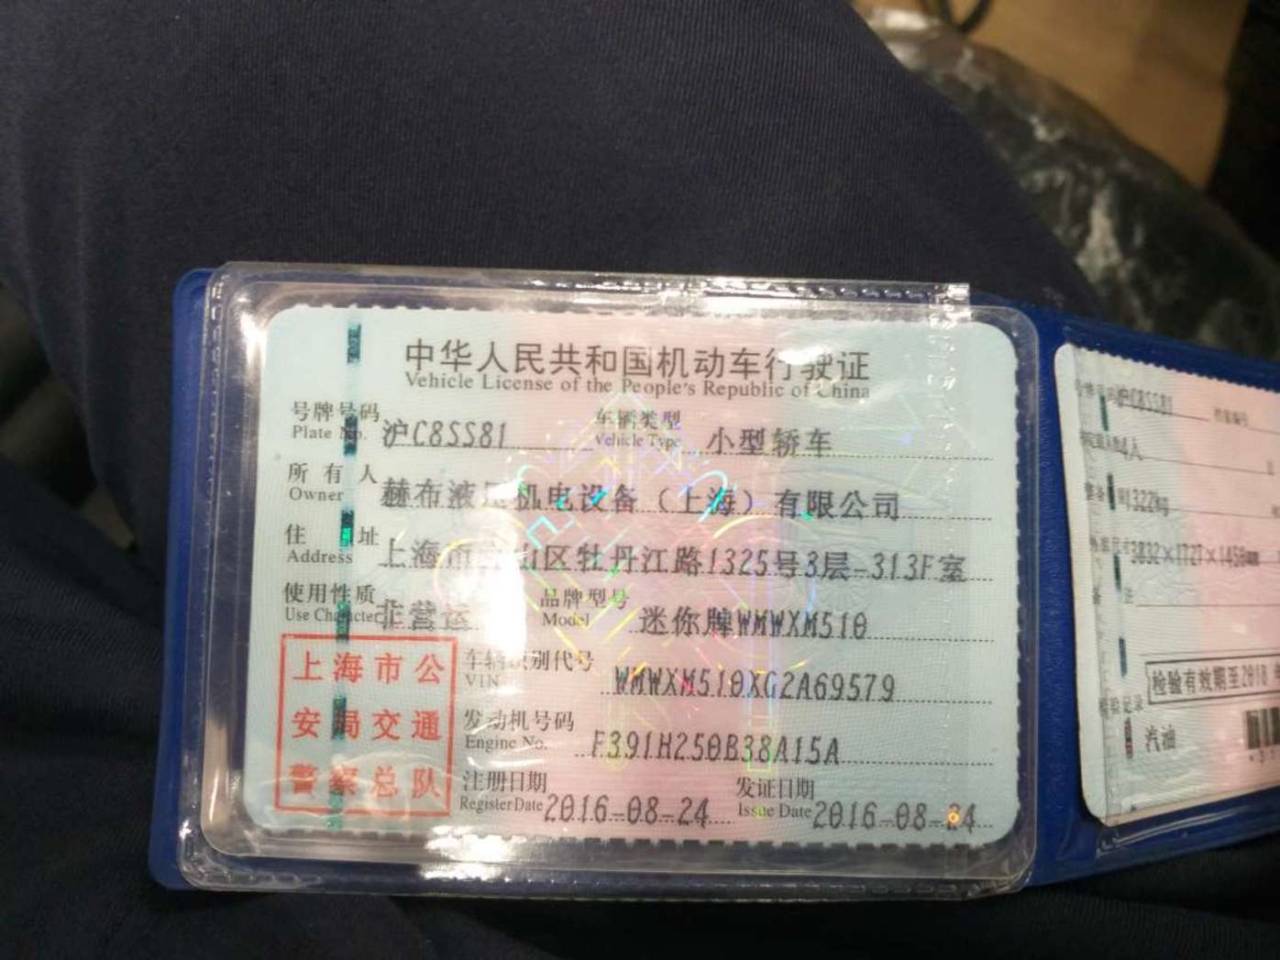 中华人民共和国机动车行驶证
Vehicle License of the People's Republic of China
号牌号码 沪C8SS81 车辆类型 小型轿车
Plate No. Vehicle Type
所有人 赫布液压机电设备（上海）有限公司
Owner
住址 上海市宝山区牡丹江路1325号3层-313F室
Address
使用性质 非营运 品牌型号 迷你牌WMWXM510
Use Character Model
上海市公
安局交通
警察总队
车辆识别代号 WMWXM510XG2A69579
VIN
发动机号码 F391H250B38A15A
Engine No.
注册日期 2016-08-24 发证日期 2016-08-24
Register Date Issue Date
号牌号码 沪C8SS81 档案编号
1322kg
3832×1727×1450mm
检验有效期至2018
检验记录
汽油